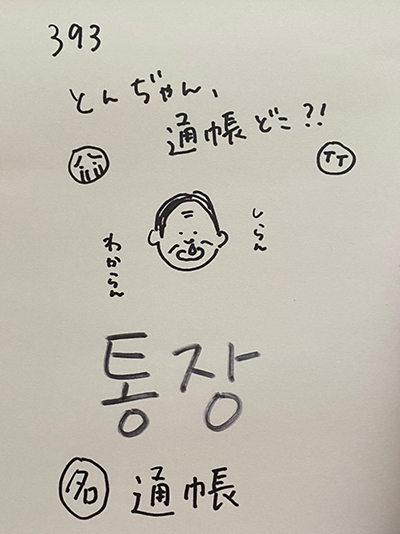 393
とんぢゃん、
通帳どこ?!
TT
しらん
わからん
통장
名 通帳